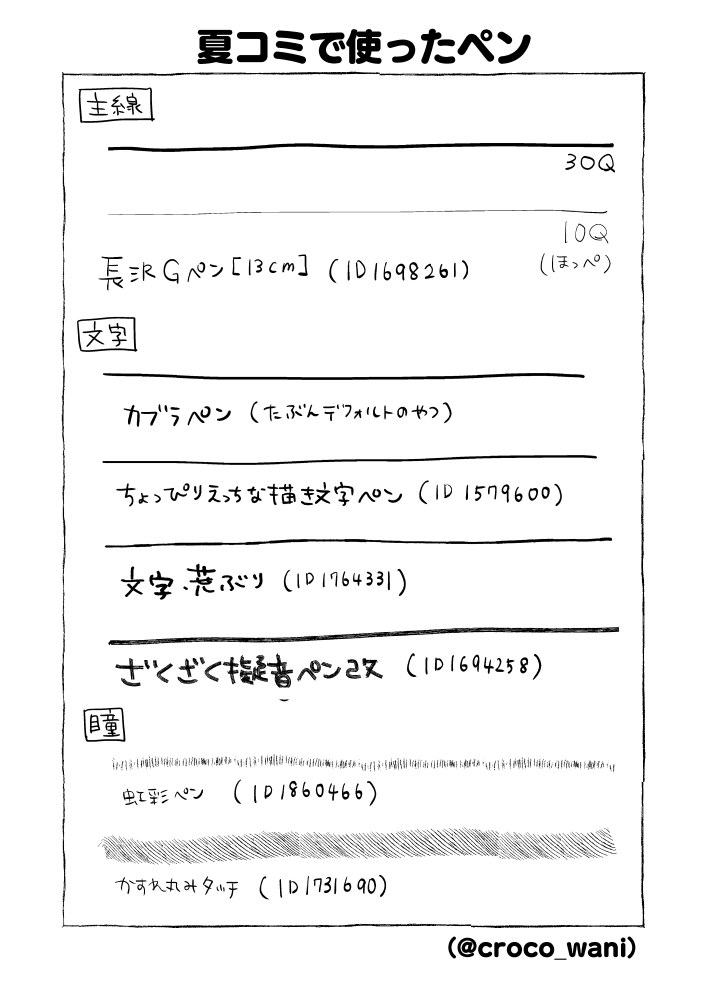 夏コミで使ったペン
主線
30Q
10Q
(ほっぺ)
長沢Gペン[13cm] (ID1698261)
文字
カブラペン (たぶんデフォルトのやつ)
ちょっぴりえっちな描き文字ペン (ID 1579600)
文字.荒ぶり (ID1764331)
ざくざく擬音ペン改 (ID1694258)
瞳
虹彩ペン (ID1860466)
かすれ丸みタッチ (ID1731690)
(@croco_wani)